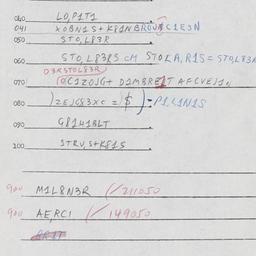 040 LO,P1T1
041 XOBN1S+K81NBROVAC1E3N
050 STO,L83R
060 STO,L83RS CM STOLA,R1S=STOL83R
D3RSTOL83R)
070 OC1ZOJG+ D1MBRE1T AFCVEJ1N
080 )ZEJG83XC=($)-P1L1N1S
090 G8141BLT
100 STRU,S+K81S
900 M1L8N3R (/211050
900 AE,RC1 (/149050